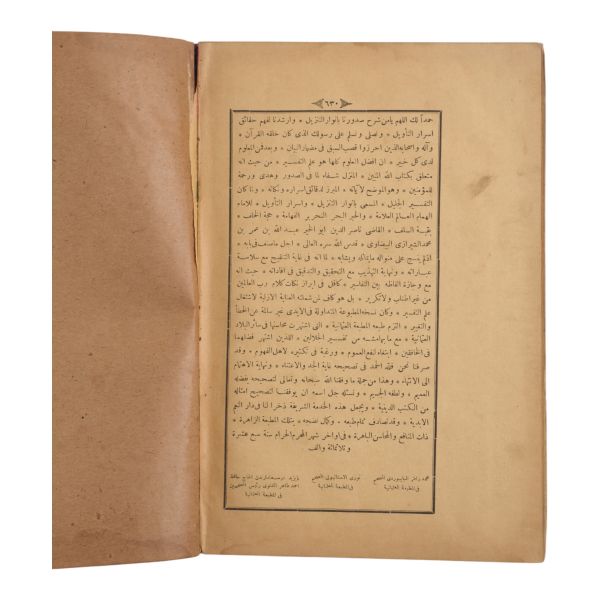 ٦٣٠
حمداً لك اللهم يامن شرح صدورنا بانوار التنزيل * وارشدنا لفهم حقائق
اسرار التأويل * ونصلى ونسلم على رسولك الذى كان خلقه القرآن *
وآله واصحابه الذين احرزوا قصب السبق فى مضمار البيان * وبعد فمن المعلوم
لدى كل خبير * ان افضل العلوم كلها هو علم التفسير * من حيث انه
متعلق بكتاب الله المبين * المنزل شفاء لما فى الصدور وهدى ورحمة
للمؤمنين * وهو الموضح لآياته * المبرز لدقائق اسراره ونكاته * ولما كان
التفسير الجليل * المسمى بانوار التنزيل * واسرار التأويل * للامام
الهمام العالم العلامة * والحبر البحر النحرير الفهامة * حجة الخلف *
بقية السلف * القاضى ناصر الدين ابو الخير عبد الله بن عمر بن
محمد الشيرازى البيضاوى * قدس الله سره العالى * اجل ماصنف فى بابه *
اذ لم ينسج على منواله مايماثله ويشابه * لما انه فى غاية التنقيح مع سلاسة
عباراته * ونهاية التهذيب مع التحقيق والتدقيق فى افاداته * حيث انه
مع وجازة الفاظه بين التفاسير * كافل فى ابراز نكات كلام رب العالمين
من غير اطناب ولا تكرير * بل هو كاف لمن شملته العناية الازلية لاشتغال
علم التفسير * وكان نسخه المطبوعة المتداولة فى الايدى غير سالمة عن الخطأ
والتغيير * التزم طبعه المطبعة العثمانية * التى اشتهرت محاسنها فى سائر البلاد
العثمانية * مع ما بهامشه من تفسير الجلالين * اللذين اشتهر فضلهما
فى الخافقين * ابتغاء لنفع العموم * ورغبة فى تكثيره لاهل الفهوم * وقد
صرفنا نحن قلة الجهد فى تصحيحه غاية الجد والاعتناء * ونهاية الاهتمام
الى الانتهاء * وهذا من جملة ما وفقنا الله سبحانه وتعالى لتصحيحه بفضله
العميم * ولطفه الجسيم * ونسئله جل اسمه ان يوفقنا لتصحيح امثاله
من الكتب الدينية * ويجعل هذه الخدمة الشريفة ذخرا لنا فى دار النعم
الابدية * وقد تصادف ختام طبعه * وكمال نضجه * بتلك المطبعة الزاهرة *
ذات المنافع والمحاسن الباهرة * فى اواخر شهر المحرم الحرام سنة سبع عشرة
وثلاثمائة والف
محمد المصحح
فى المطبعة العثمانية
نورى المصحح
فى المطبعة العثمانية
حافظ
احمد طاهر القنوى رئيس المصححين
فى المطبعة العثمانية